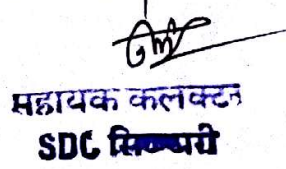 सहायक कलक्टर
SDC